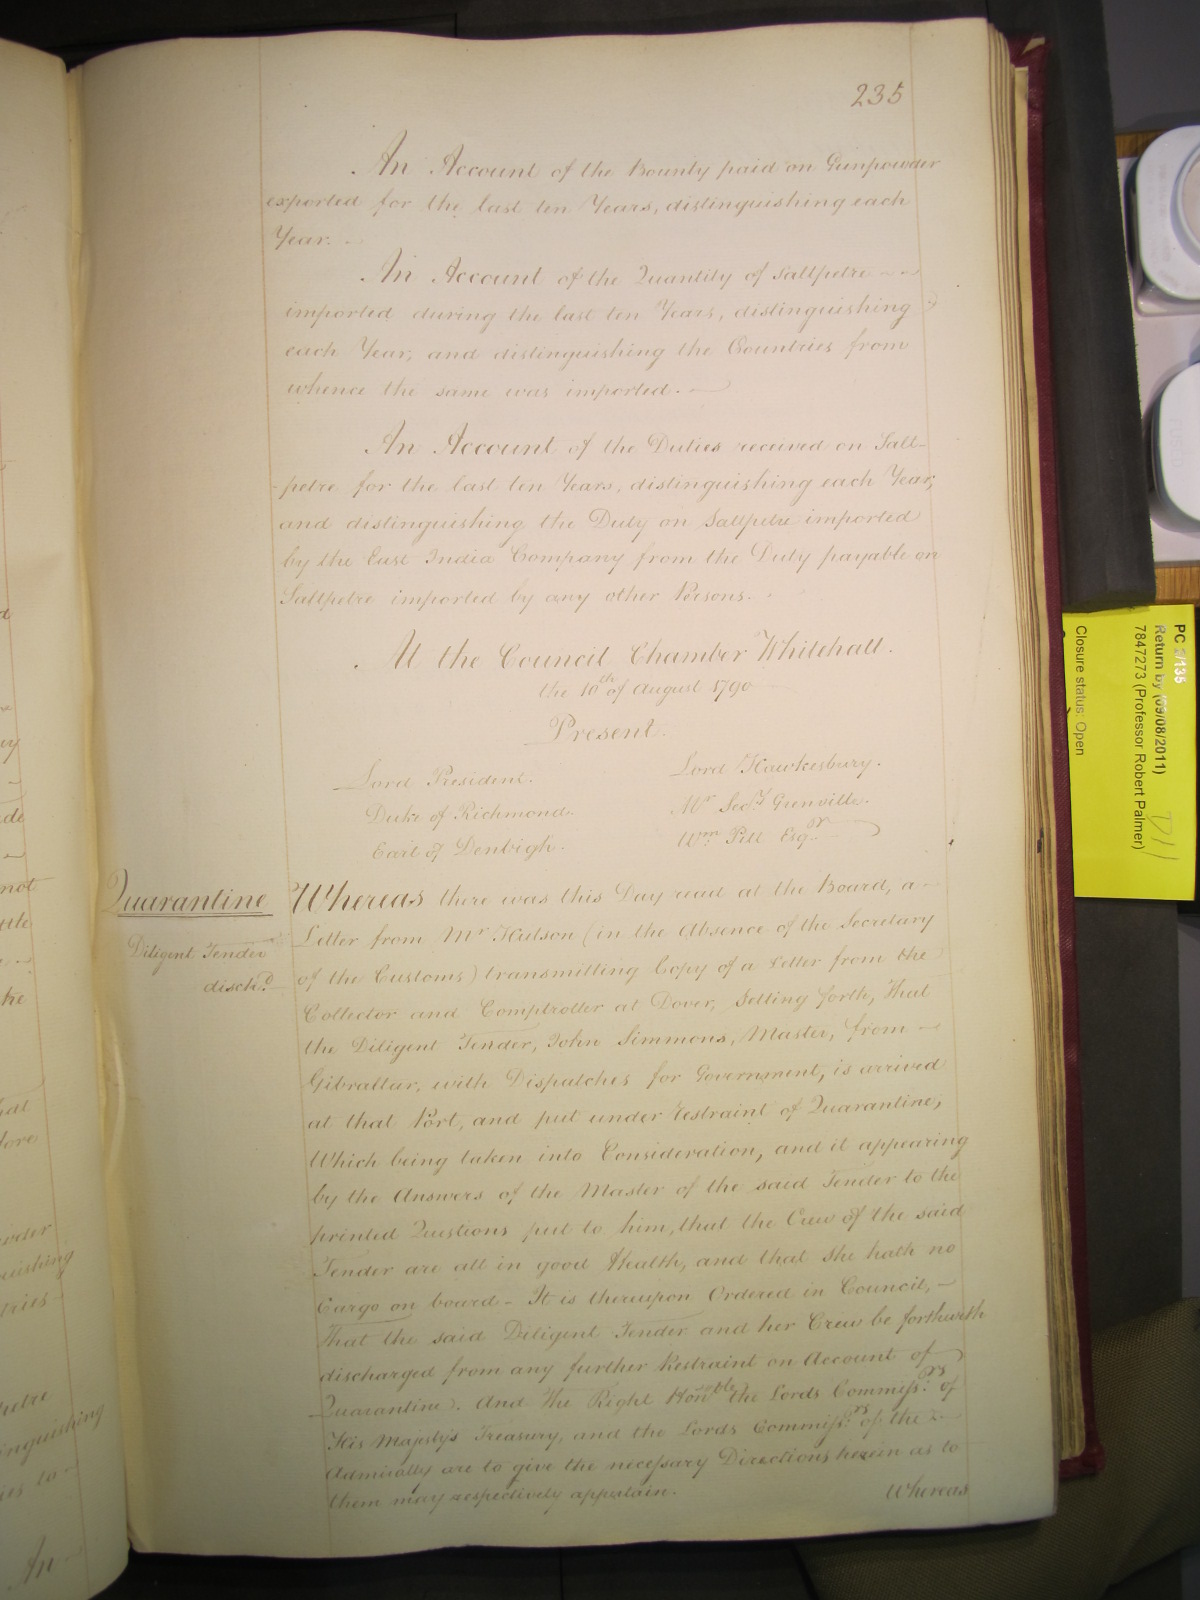 235
An Account of the Bounty paid on Gunpowder
exported for the last ten Years, distinguishing each
Year.
An Account of the Quantity of Saltpetre
imported during the last ten Years, distinguishing
each Year, and distinguishing the Countries from
whence the same was imported.
An Account of the Duties received on Salt-
-petre for the last ten Years, distinguishing each Year;
and distinguishing the Duty on Saltpetre imported
by the East India Company from the Duty payable on
Saltpetre imported by any other Persons.
At the Council Chamber Whitehall.
the 10th of August 1790
Present.
Lord President.
Lord Hawkesbury.
Duke of Richmond.
Mr Secry Grenville.
Earl of Denbigh.
Wm Pitt Esqr
Quarantine
Diligent Tender
dischd
Whereas there was this Day read at the Board, a
Letter from Mr Hutson (in the Absence of the Secretary
of the Customs) transmitting Copy of a Letter from the
Collector and Comptroller at Dover, Setting forth, That
the Diligent Tender, John Simmons, Master, from
Gibraltar, with Dispatches for Government, is arrived
at that Port, and put under restraint of Quarantine;
Which being taken into Consideration, and it appearing
by the Answers of the Master of the said Tender to the
printed Questions put to him, that the Crew of the said
Tender are all in good Health, and that she hath no
Cargo on board - It is thereupon Ordered in Council, -
That the said Diligent Tender and her Crew be forthwith
discharged from any further Restraint on Account of
Quarantine. And The Right Honble the Lords Commissrs of
His Majesty's Treasury, and the Lords Commissrs of the
Admiralty are to give the necessary Directions herein as to
them may respectively appertain.
Whereas
PC 2/135
Return by (09/08/2011)
7847273 (Professor Robert Palmer)
Closure status: Open
D11